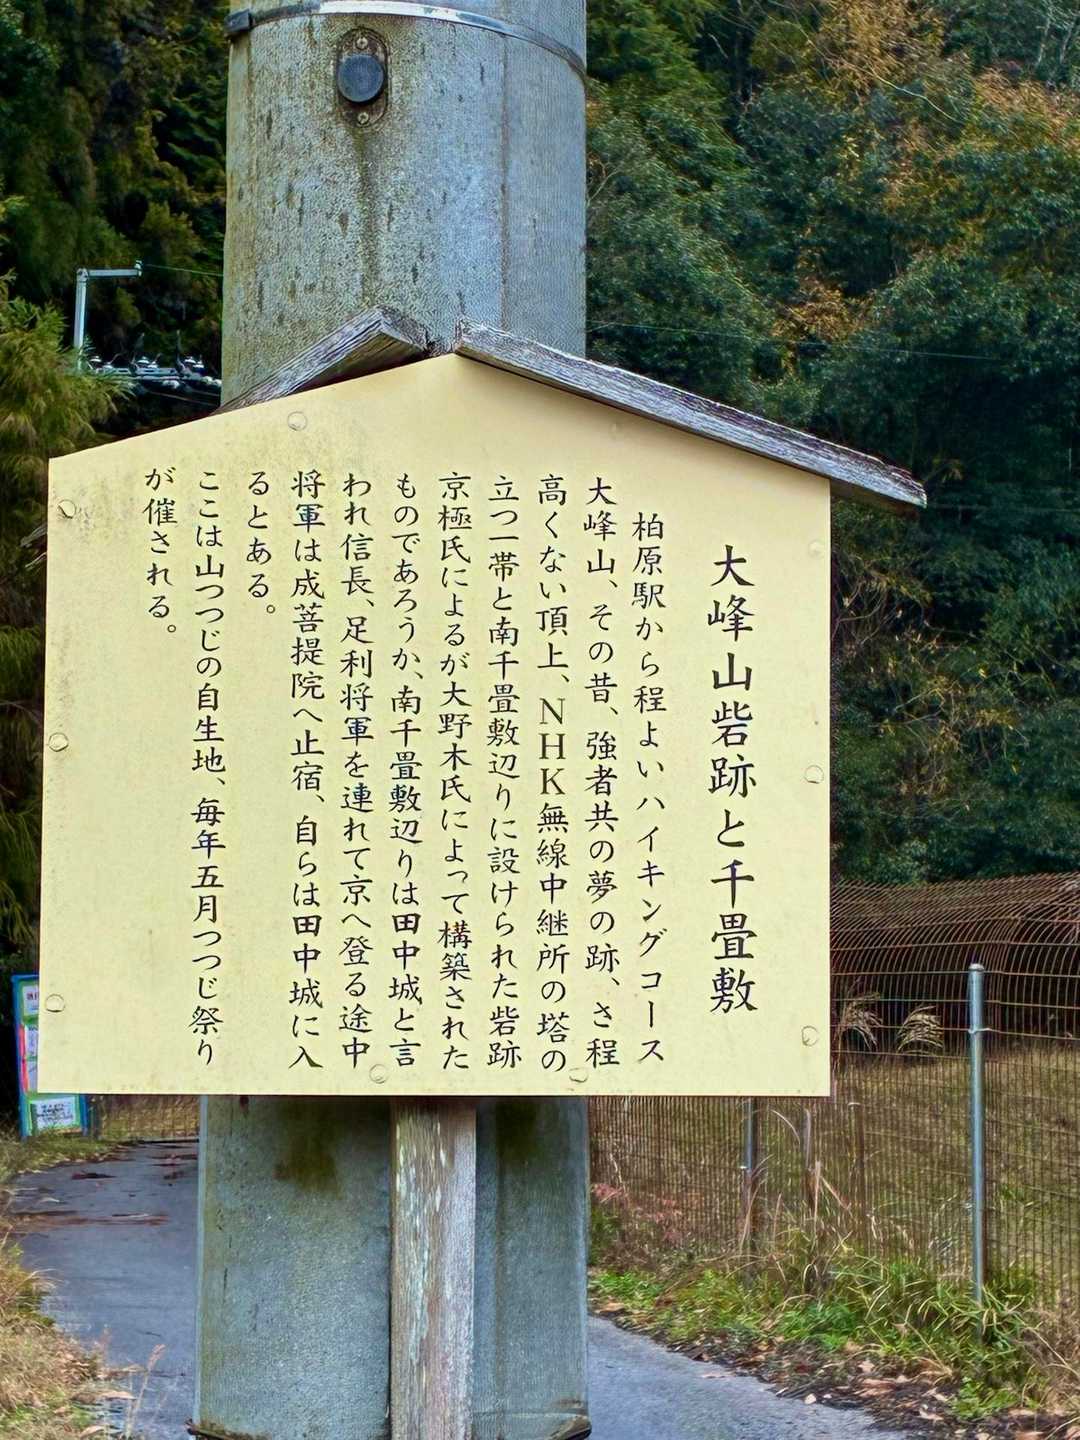 大峰山砦跡と千畳敷
柏原駅から程よいハイキングコース
大峰山、その昔、強者共の夢の跡、さ程
高くない頂上、NHK無線中継所の塔の
立つ一帯と南千畳敷辺りに設けられた砦跡
京極氏によるが大野木氏によって構築された
ものであろうか、南千畳敷辺りは田中城と言
われ信長、足利将軍を連れて京へ登る途中
将軍は成菩提院へ止宿、自らは田中城に入
るとある。
ここは山つつじの自生地、毎年五月つつじ祭り
が催される。